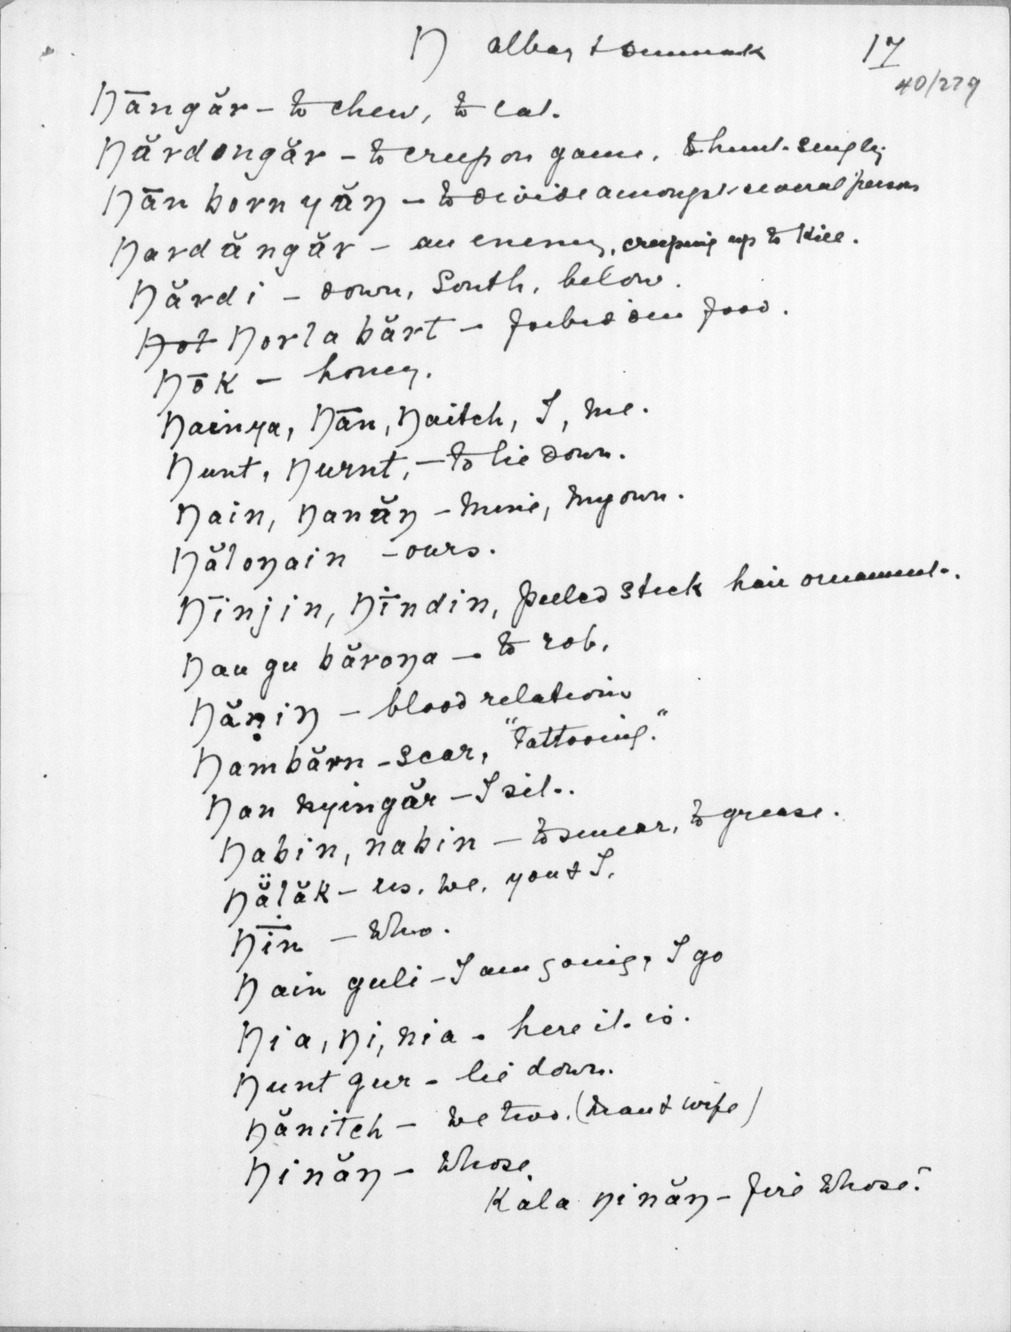 Ŋ Albany & Denmark 17
40/279
Ŋāngăr – to chew, to eat.
Ŋărdongăr – to creep on game, to hunt singly
Ŋān born yăŋ – to divide amongst several persons
Ŋardăngăr – an enemy, creeping up to kill.
Ŋărdi – down, South, below.
Ŋot Ŋorla bărt – forbidden food.
Ŋōk – honey.
Ŋainya, Ŋān, Ŋaitch, I, me.
Ŋunt, Ŋurnt, – to lie down.
Ŋain, Ŋanăŋ – mine, my own.
Ŋăloŋain – ours.
Ŋīnjin, Ŋīndin, peeled stick hair ornament.
Ŋau gu băroŋa – to rob.
Ŋăṇiŋ – blood relations
Ŋambărn – scar, "tattooing."
Ŋan nyingăr – I sit.
Ŋabin, nabin – to smear, to grease.
Ŋălăk – us, we, you & I.
Ŋīn – who.
Ŋain guli – I am going, I go
Ŋia, Ŋi, nia – here it is.
Ŋunt gur – lie down.
Ŋănitch – we two. (man & wife)
Ŋinăŋ – whose
Kala ŋinăŋ – fire whose?